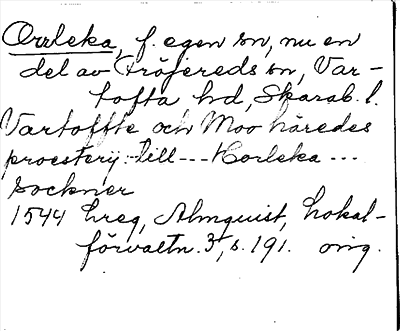 Orrleka, f. egen sn, nu en
del av Fröjereds sn, Var-
tofta hd, Skarab. l.
Vartoffte och Moo häredes
proestery: till --- Horleka ---
sockner
1544 hreg, Almquist, Lokal-
förvaltn. 3, s. 191. orig.